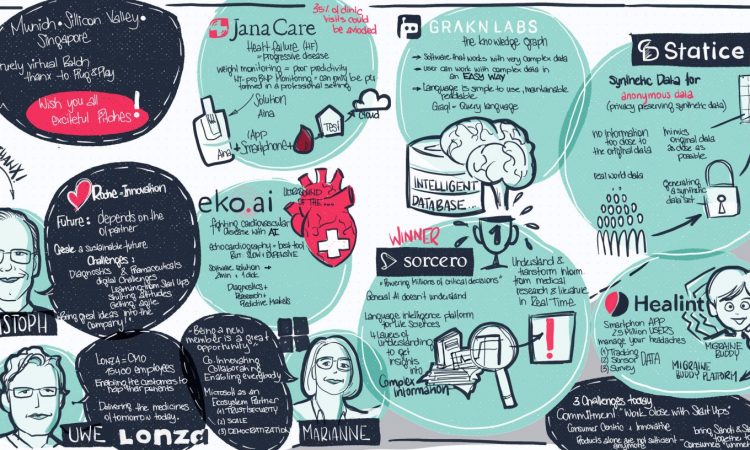 Munich · Sillicon Valley ·
Singapore
Virtual Batch
thanx to Plug & Play
Wish you all
exciteful Pitches!
THANX!
Jana Care
35% of clinic
visits could
be avoided
Heart-failure (HF)
= progressive disease
weight monitoring = poor predictivity
NT-pro BNP Monitoring = can only be per
formed in a professional setting
Solution
Aina
(App
Aina + Smartphone +
Test
Cloud
GRAKN LABS
the knowledge Graph
→ Software that works with very complex data
→ user can work with complex data in
an EASY WAY
→ Language is simple to use, maintainable
readable
Graql = Query language
INTELLIGENT
DATABASE...
Statice
Synthetic Data for
anonymous data
(privacy preserving synthetic data)
no information
too close to
the original data
mimics
original data
as close as
possible
real world data
generating
a synthetic
data set
Roche - Innovation
Future: depends on the
of partner
Create a sustainable future
Challenges:
Diagnostics & Pharmaceuticals
digital challenges
learning from Start Ups
shifting attitudes
getting agile
Bring great ideas into the
company!
STOPH
eko.ai
ULTRASOUND
OF THE....
fighting cardiovascular
disease with AI
echocardiography = best tool
BUT: SLOW & EXPENSIVE
Software solution →
2min, 1 click
Diagnostics +
Research +
Predictive Markets
WINNER
1
sorcero
"Powering millions of critical decisions"
General AI doesn't understand
Language intelligence platform
for Life Sciences
4 Layers of
understanding
to get
insights
into
Complex
Information
Understand &
transform inform.
from medical
research & literature
in Real-Time
!
Healint
Smartphon APP
2.5 Million USERS
manage your headaches
(1) Tracking
(2) Sensor DATA
(3) Survey
MIGRAINE
BUDDY
MIGRAINE
BUDDY PLATFORM
LONZA = CMO
15400 employees
Enabling the customers to
help their patients
Delivering the medicines
of tomorrow today.
UWE Lonza
"Being a new
member is a great
opportunity"
Co. Innovating
Collaborating
Enabling everybody
Microsoft as an
Ecosystem Partner
(1) TRUST/SECURITY
(2) SCALE
(3) DEMOCRATIZATION
MARIANNE
3 Challenges today
Commitment "Work close with Start Ups"
Consumer Centric + Innovative
Products alone are not sufficient
anymore
together to